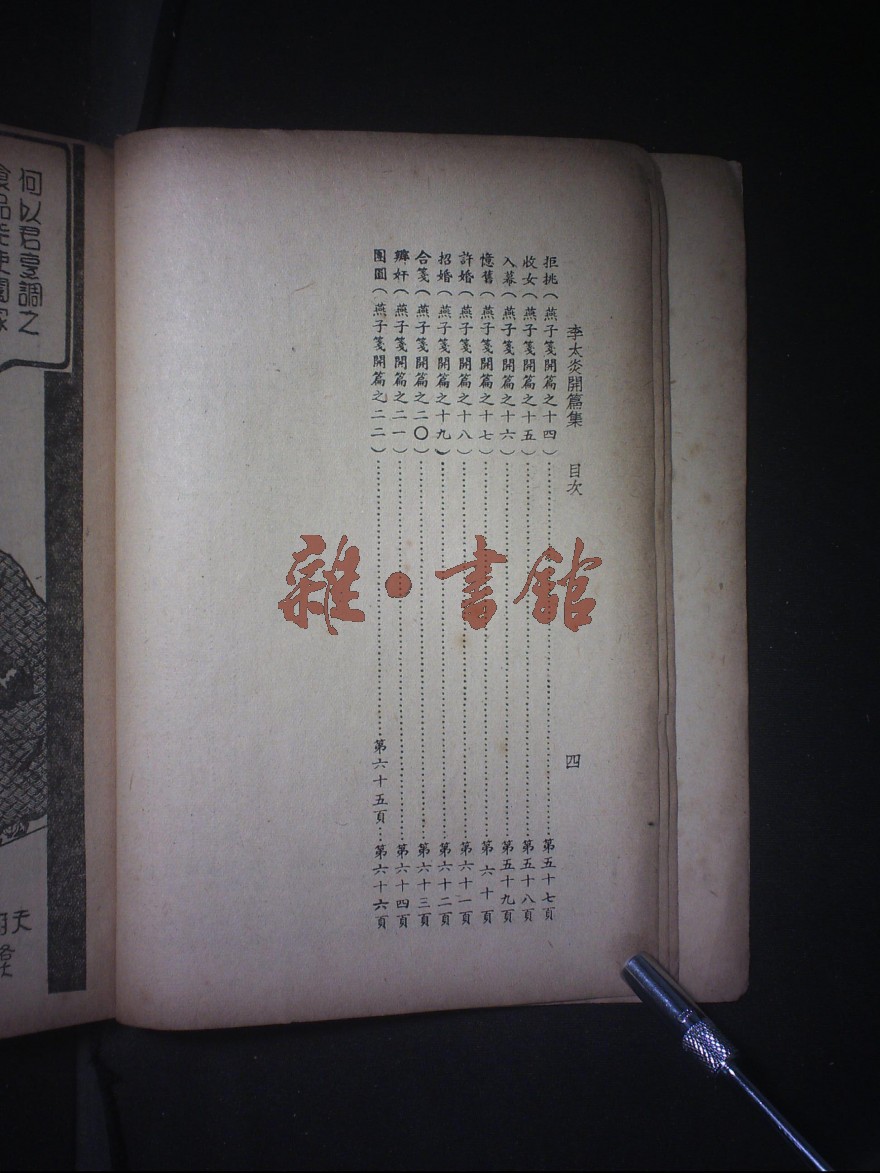 李太炎開篇集　目次　四
拒挑（燕子箋開篇之十四）…………第五十七頁
收女（燕子箋開篇之十五）…………第五十八頁
入幕（燕子箋開篇之十六）…………第五十九頁
憶舊（燕子箋開篇之十七）…………第六十頁
許婚（燕子箋開篇之十八）…………第六十一頁
招婚（燕子箋開篇之十九）…………第六十二頁
合箋（燕子箋開篇之二〇）…………第六十三頁
辨奸（燕子箋開篇之二一）…………第六十四頁
團圓（燕子箋開篇之二二）…………第六十五頁…第六十六頁
雜·書館
何以君烹調之